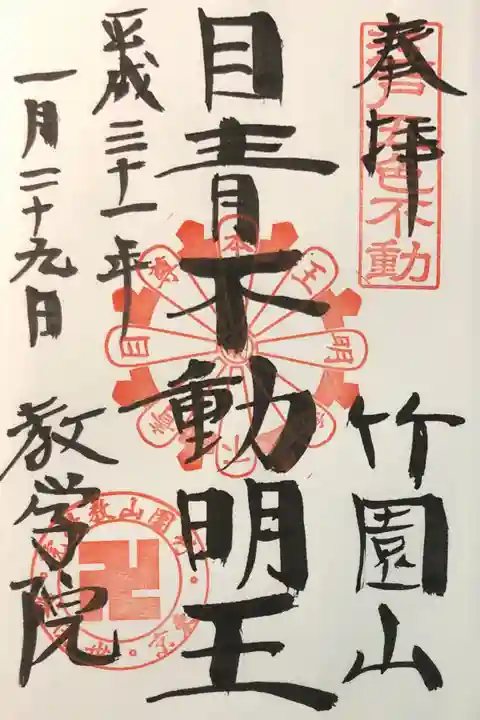 奉拝
江戸五色不動
竹園山
目青不動明王
平成三十一年
一月二十九日
教学院